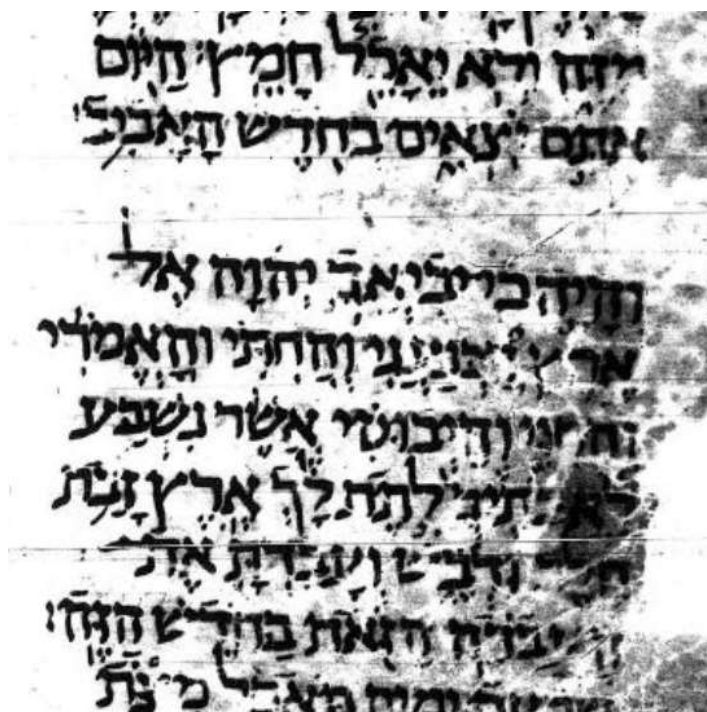 מִזֶּה וְלֹא יֵאָכֵל חָמֵץ׃ הַיּוֹם
אַתֶּם יֹצְאִים בְּחֹדֶשׁ הָאָבִיב׃
וְהָיָה כִי יְבִיאֲךָ יְהוָה אֶל
אֶרֶץ הַכְּנַעֲנִי וְהַחִתִּי וְהָאֱמֹרִי
וְהַחִוִּי וְהַיְבוּסִי אֲשֶׁר נִשְׁבַּע
לַאֲבֹתֶיךָ לָתֶת לָךְ אֶרֶץ זָבַת
חָלָב וּדְבָשׁ וְעָבַדְתָּ אֶת
הָעֲבֹדָה הַזֹּאת בַּחֹדֶשׁ הַזֶּה׃
שִׁבְעַת יָמִים תֹּאכַל מַצֹּת